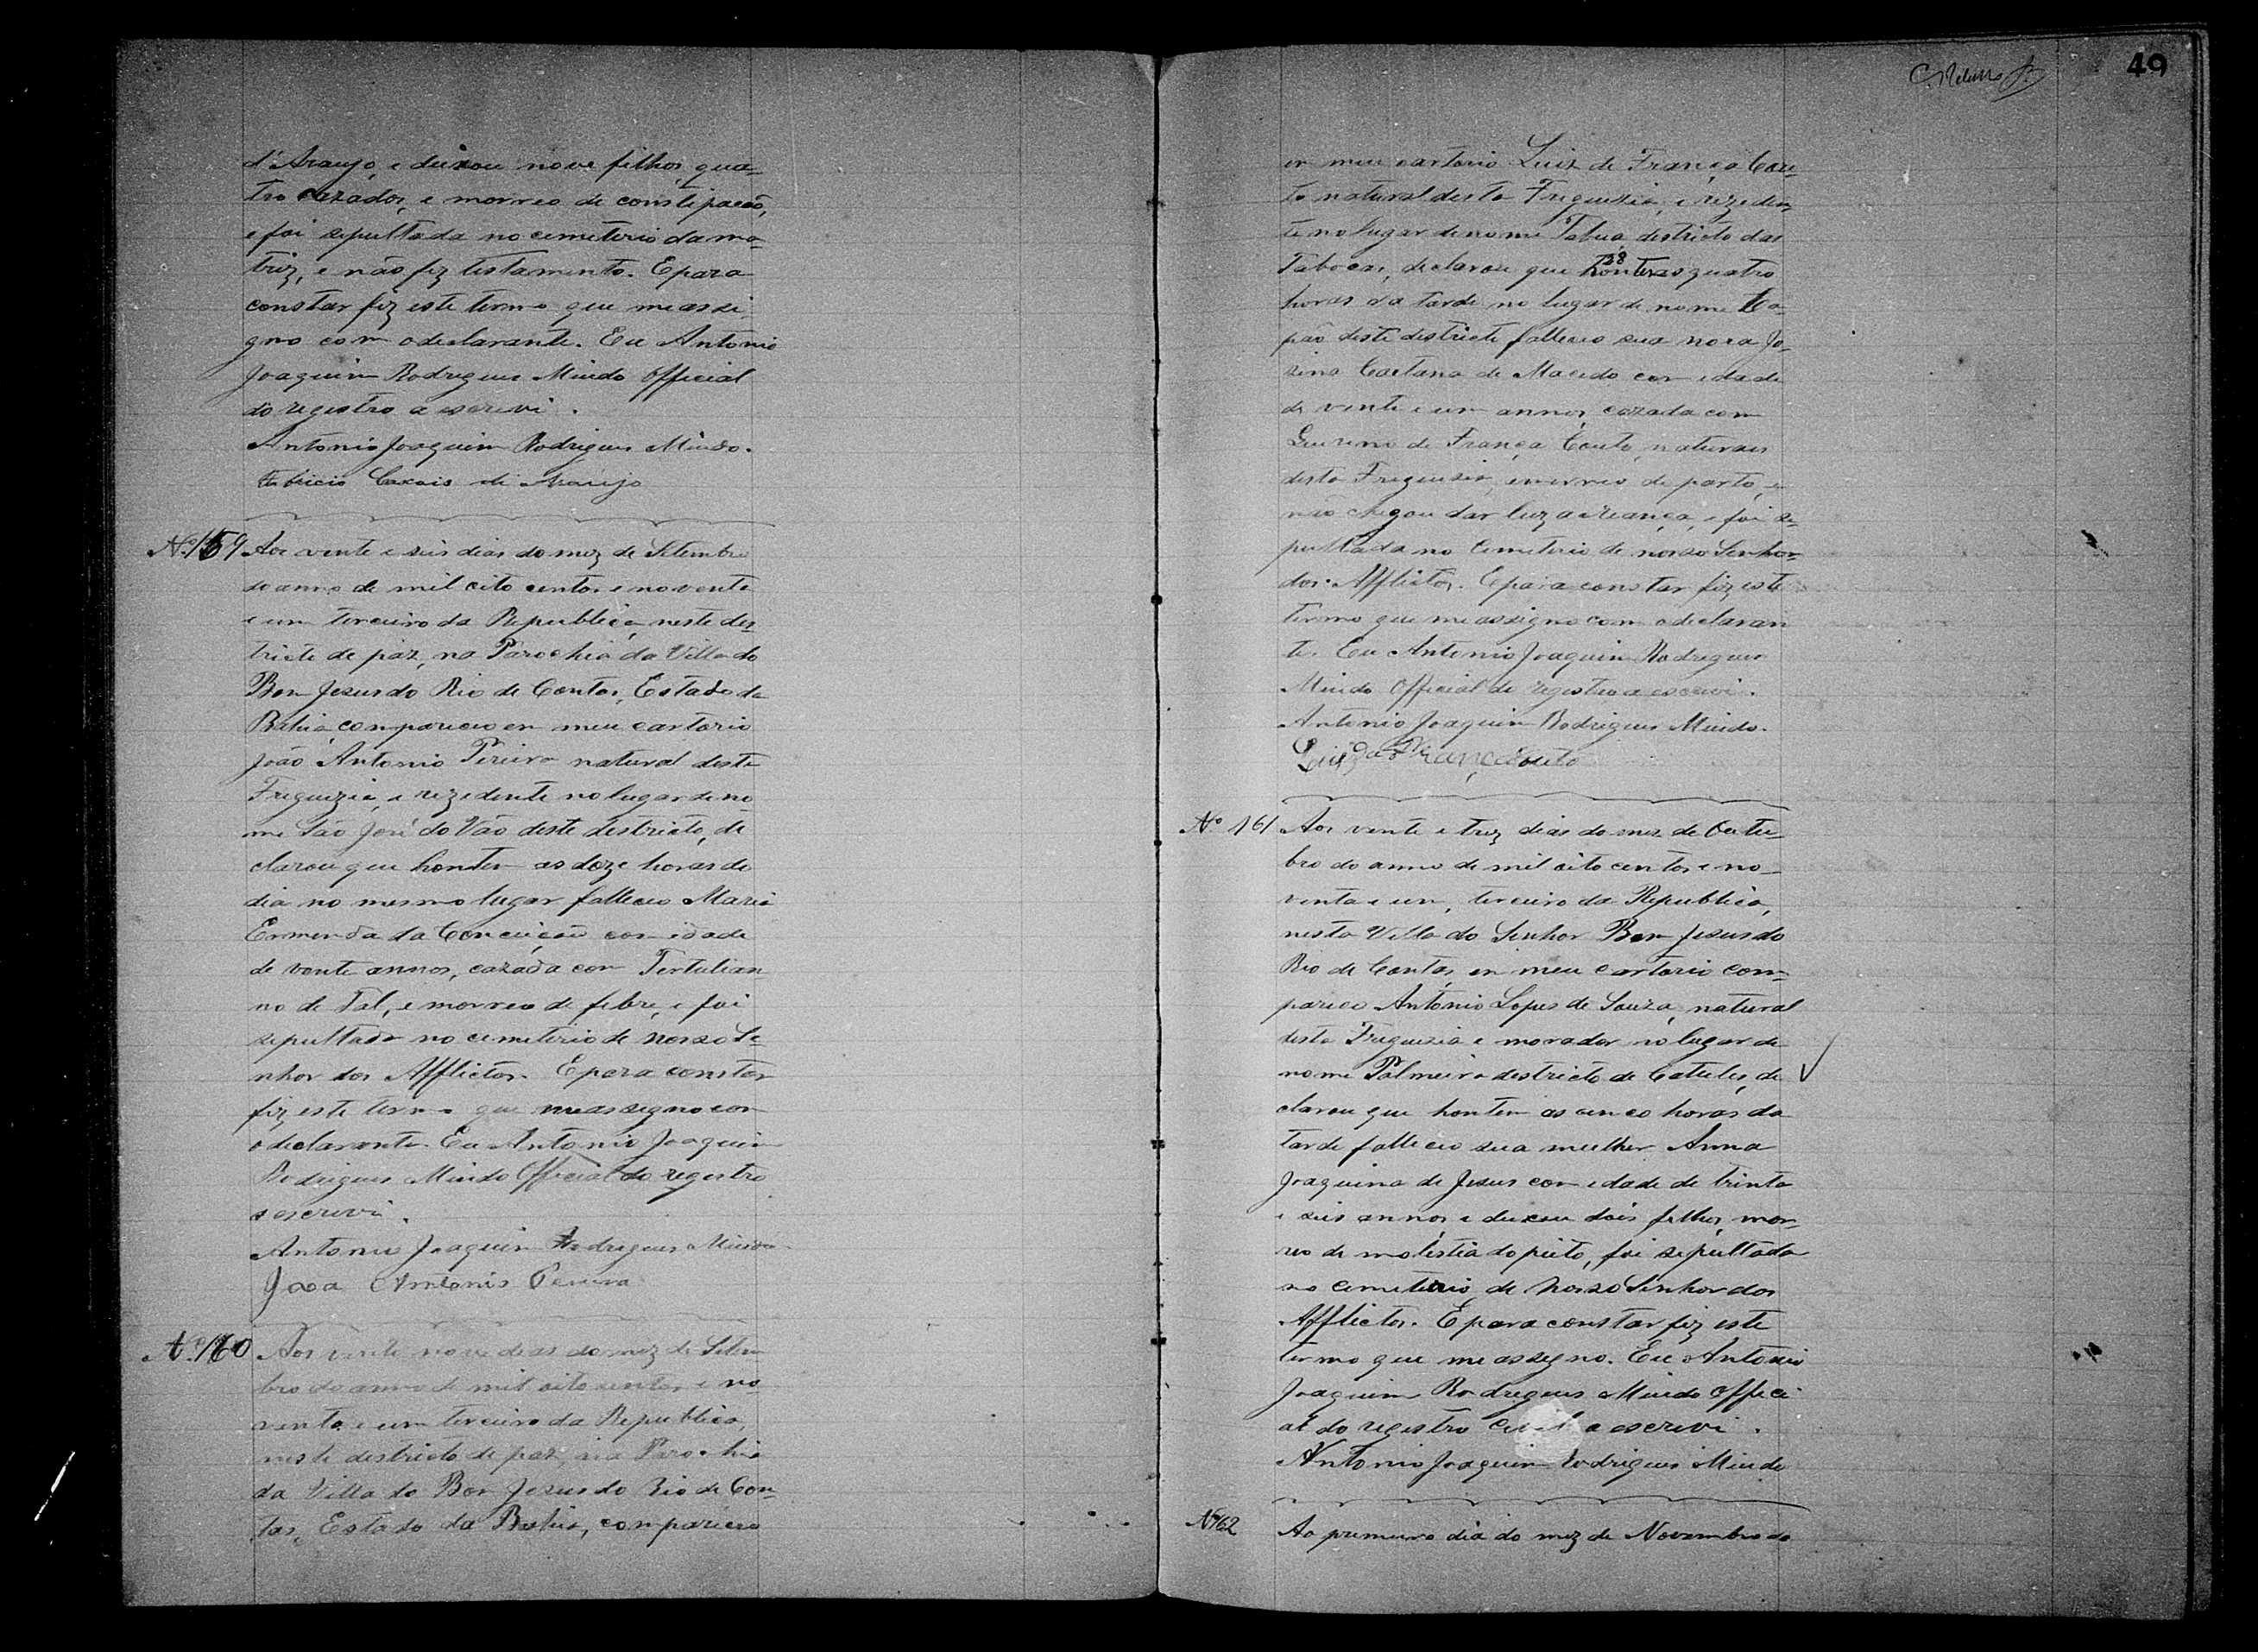 d'Araujo, e deixou nove filhos, qua-
tro cazados, e morreo de constipacaõ,
e foi sepultada no cemeterio da ma-
triz, e não fez testamento. E para
constar fiz este termo que me assi
gno com o declarante. Eu Antonio
Joaquim Rodrigues Miudo official
do registro a escrevi.
Antonio Joaquim Rodrigues Miudo.
Fabricio Cassais de Araujo
Nº 159 Aos vente e seis dias do mez de Setembro
do anno de mil oito centos e novente
e um terceiro da Republica neste des
tricto de paz, na Parochia da Villa do
Bom Jesus do Rio de Contas, Estado da
Bahia, compareceo em meu cartorio
João Antonio Pereira natural desta
Freguezia, e rezedente no lugar de no-
me São José do Vão deste destricto, de
clarou que hontem as doze horas do
dia no mesmo lugar falleceo Maria
Ermenda da Conceição com idade
de vente annos, cazada com Tertulian
no de Tal, e morreo de febre, e foi
sepultada no cemeterio de nosso Se
nhor dos Afflictos. E para constar
fiz este termo que me assegno com
o declarante. Eu Antonio Joaquim
Rodrigues Miudo Official do registro
a escrevi.
Antonio Joaquim Rodrigues Miudo
Joaa Antonio Pereira
Nº 160 Aos vente nove dias do mez de Setem
bro do anno de mil oito centos e no
venta e um terceiro da Republica,
neste destricto de paz, na Parochia
da Villa do Bom Jesus do Rio de Con-
tas, Estado da Bahia, compareceo
49
em meu cartorio Luiz de França Cou-
to natural desta Freguezia, e rezeden
te no lugar de nome Tabua destricto das
Tabocas, declarou que hontem as quatro
28
horas da tarde no lugar de nome
pão deste destricto falleceo sua nora Jo-
zina Caetana de Macedo com edade
de vente e um annos, cazada com
de França Couto, naturaes
desta Freguezia, e morreo de parto, e
não chegou dar luz a creança, e foi se-
pultada no Cemeterio de nosso Senhor
dos Afflictos. E para constar fiz este
termo que me assigno com o declaran
te. Eu Antonio Joaquim Rodrigues
Miudo Official do registro a escrevi.
Antonio Joaquim Rodrigues Miudo.
Luiz da França Couto
Nº 161 Aos vente e trez dias do mez de Outu-
bro do anno de mil oito centos e no-
venta e um, terceiro da Republica,
nesta Villa do Senhor Bom Jesus do
Rio de Contas, em meu cartorio com-
pareceo Antonio Lopes de Souza, natural
desta Freguezia e morador no lugar de
nome Palmeira destricto de Catules, de
clarou que hontem as cinco horas da
tarde falleceo sua mulher Anna
Joaquina de Jesus com edade de trinta
e seis annos, e deixou dois filhos, mor-
reo de molestia do peito, foi sepultada
no cemeterio de Nosso Senhor dos
Afflictos. E para constar fiz este
termo que me assegno. Eu Antonio
Joaquim Rodregues Miudo Offici
al do registro civil a escrevi.
Antonio Joaquim Rodrigues Miudo
Nº 162 Ao premeiro dia do mez de Novembro do